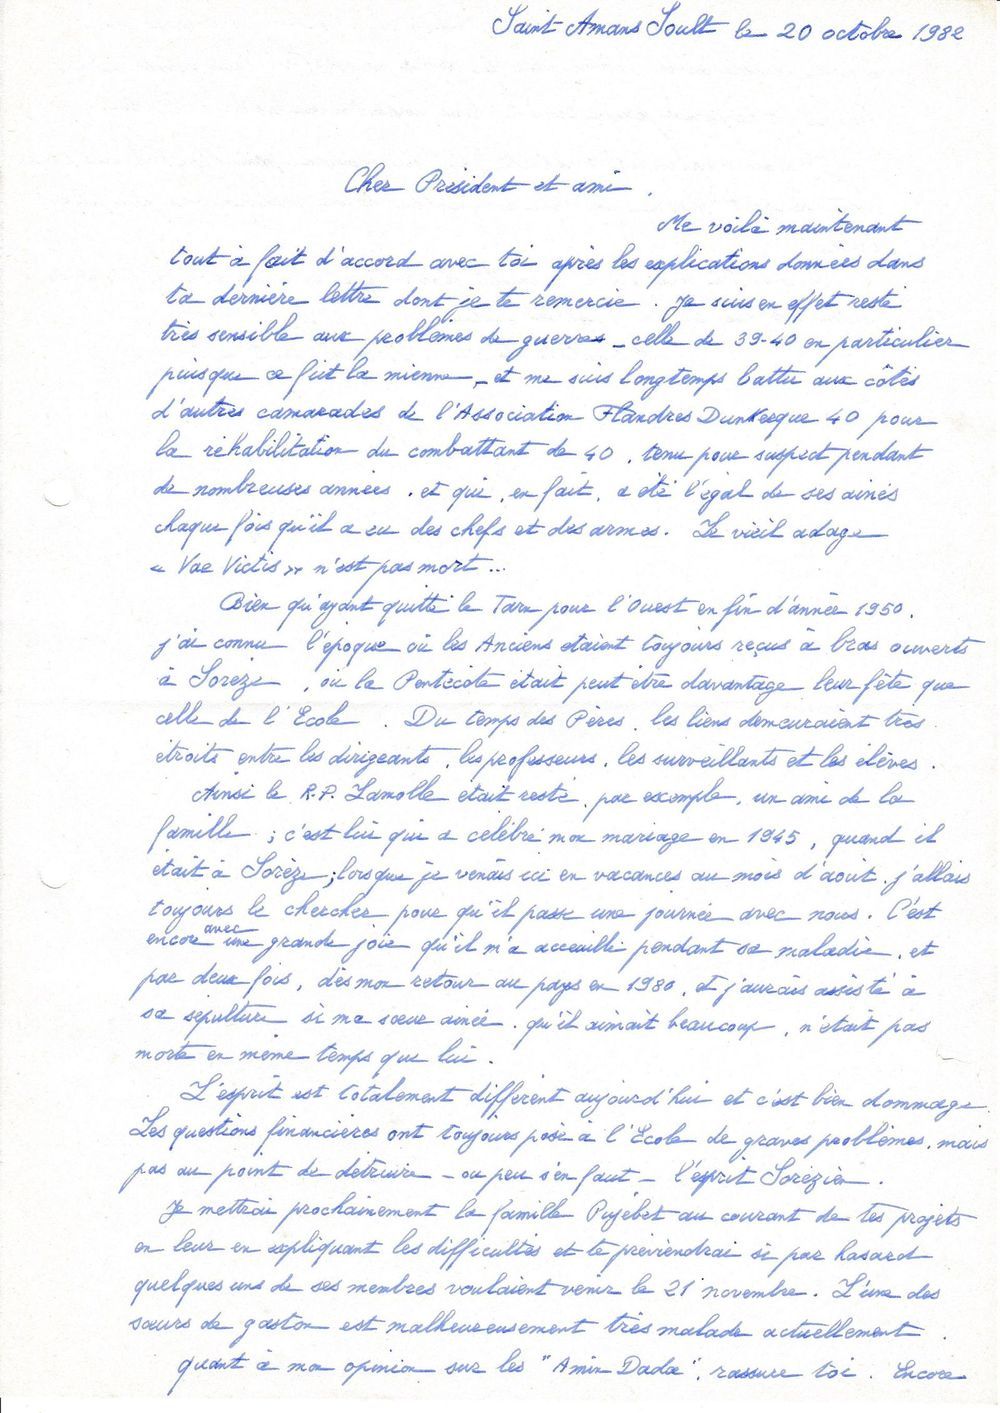 Saint Amans Soult le 20 octobre 1982
Cher Président et ami.
Me voilà maintenant
tout à fait d'accord avec toi après les explications données dans
ta dernière lettre dont je te remercie. Je suis en effet resté
très sensible aux problèmes de guerres - celle de 39-40 en particulier
puisque ce fut la mienne - et me suis longtemps battu aux côtés
d'autres camarades de l'Association Flandres Dunkerque 40 pour
la réhabilitation du combattant de 40, tenu pour suspect pendant
de nombreuses années, et qui, en fait, a été l'égal de ses ainés
chaque fois qu'il a eu des chefs et des armes. Le vieil adage
« Vae Victis » n'est pas mort...
Bien qu'ayant quitté le Tarn pour l'Ouest en fin d'année 1950,
j'ai connu l'époque où les Anciens étaient toujours reçus à bras ouverts
à Sorèze, où la Pentecôte était peut être davantage leur fête que
celle de l'Ecole. Du temps des Pères, les liens demeuraient très
étroits entre les dirigeants, les professeurs, les surveillants et les élèves.
Ainsi le R.P. Lamolle était resté, par exemple, un ami de la
famille ; c'est lui qui a célébré mon mariage en 1945, quand il
était à Sorèze ; lorsque je venais ici en vacances au mois d'août, j'allais
toujours le chercher pour qu'il passe une journée avec nous. C'est
encore avec une grande joie qu'il m'a acceuilli pendant sa maladie, et
par deux fois, dès mon retour au pays en 1980, et j'aurais assisté à
sa sépulture si ma sœur ainée, qu'il aimait beaucoup, n'était pas
morte en même temps que lui.
L'esprit est totalement différent aujourd'hui et c'est bien dommage.
Les questions financières ont toujours posé à l'Ecole de graves problèmes, mais
pas au point de détruire - ou peu s'en faut - l'esprit Sorézien.
Je mettrai prochainement la famille Pujebet au courant de tes projets
en leur en expliquant les difficultés et te préviendrai si par hasard
quelques uns de ses membres voulaient venir le 21 novembre. L'une des
sœurs de gaston est malheureusement très malade actuellement.
quant à mon opinion sur les "Amin Dada", rassure toi. Encore